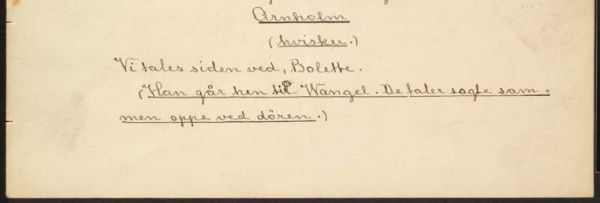 Arnholm
(hvisker.)
Vi tales siden ved, Bolette.
(Han går hen til Wangel. De taler sagte sam-
men oppe ved dören.)